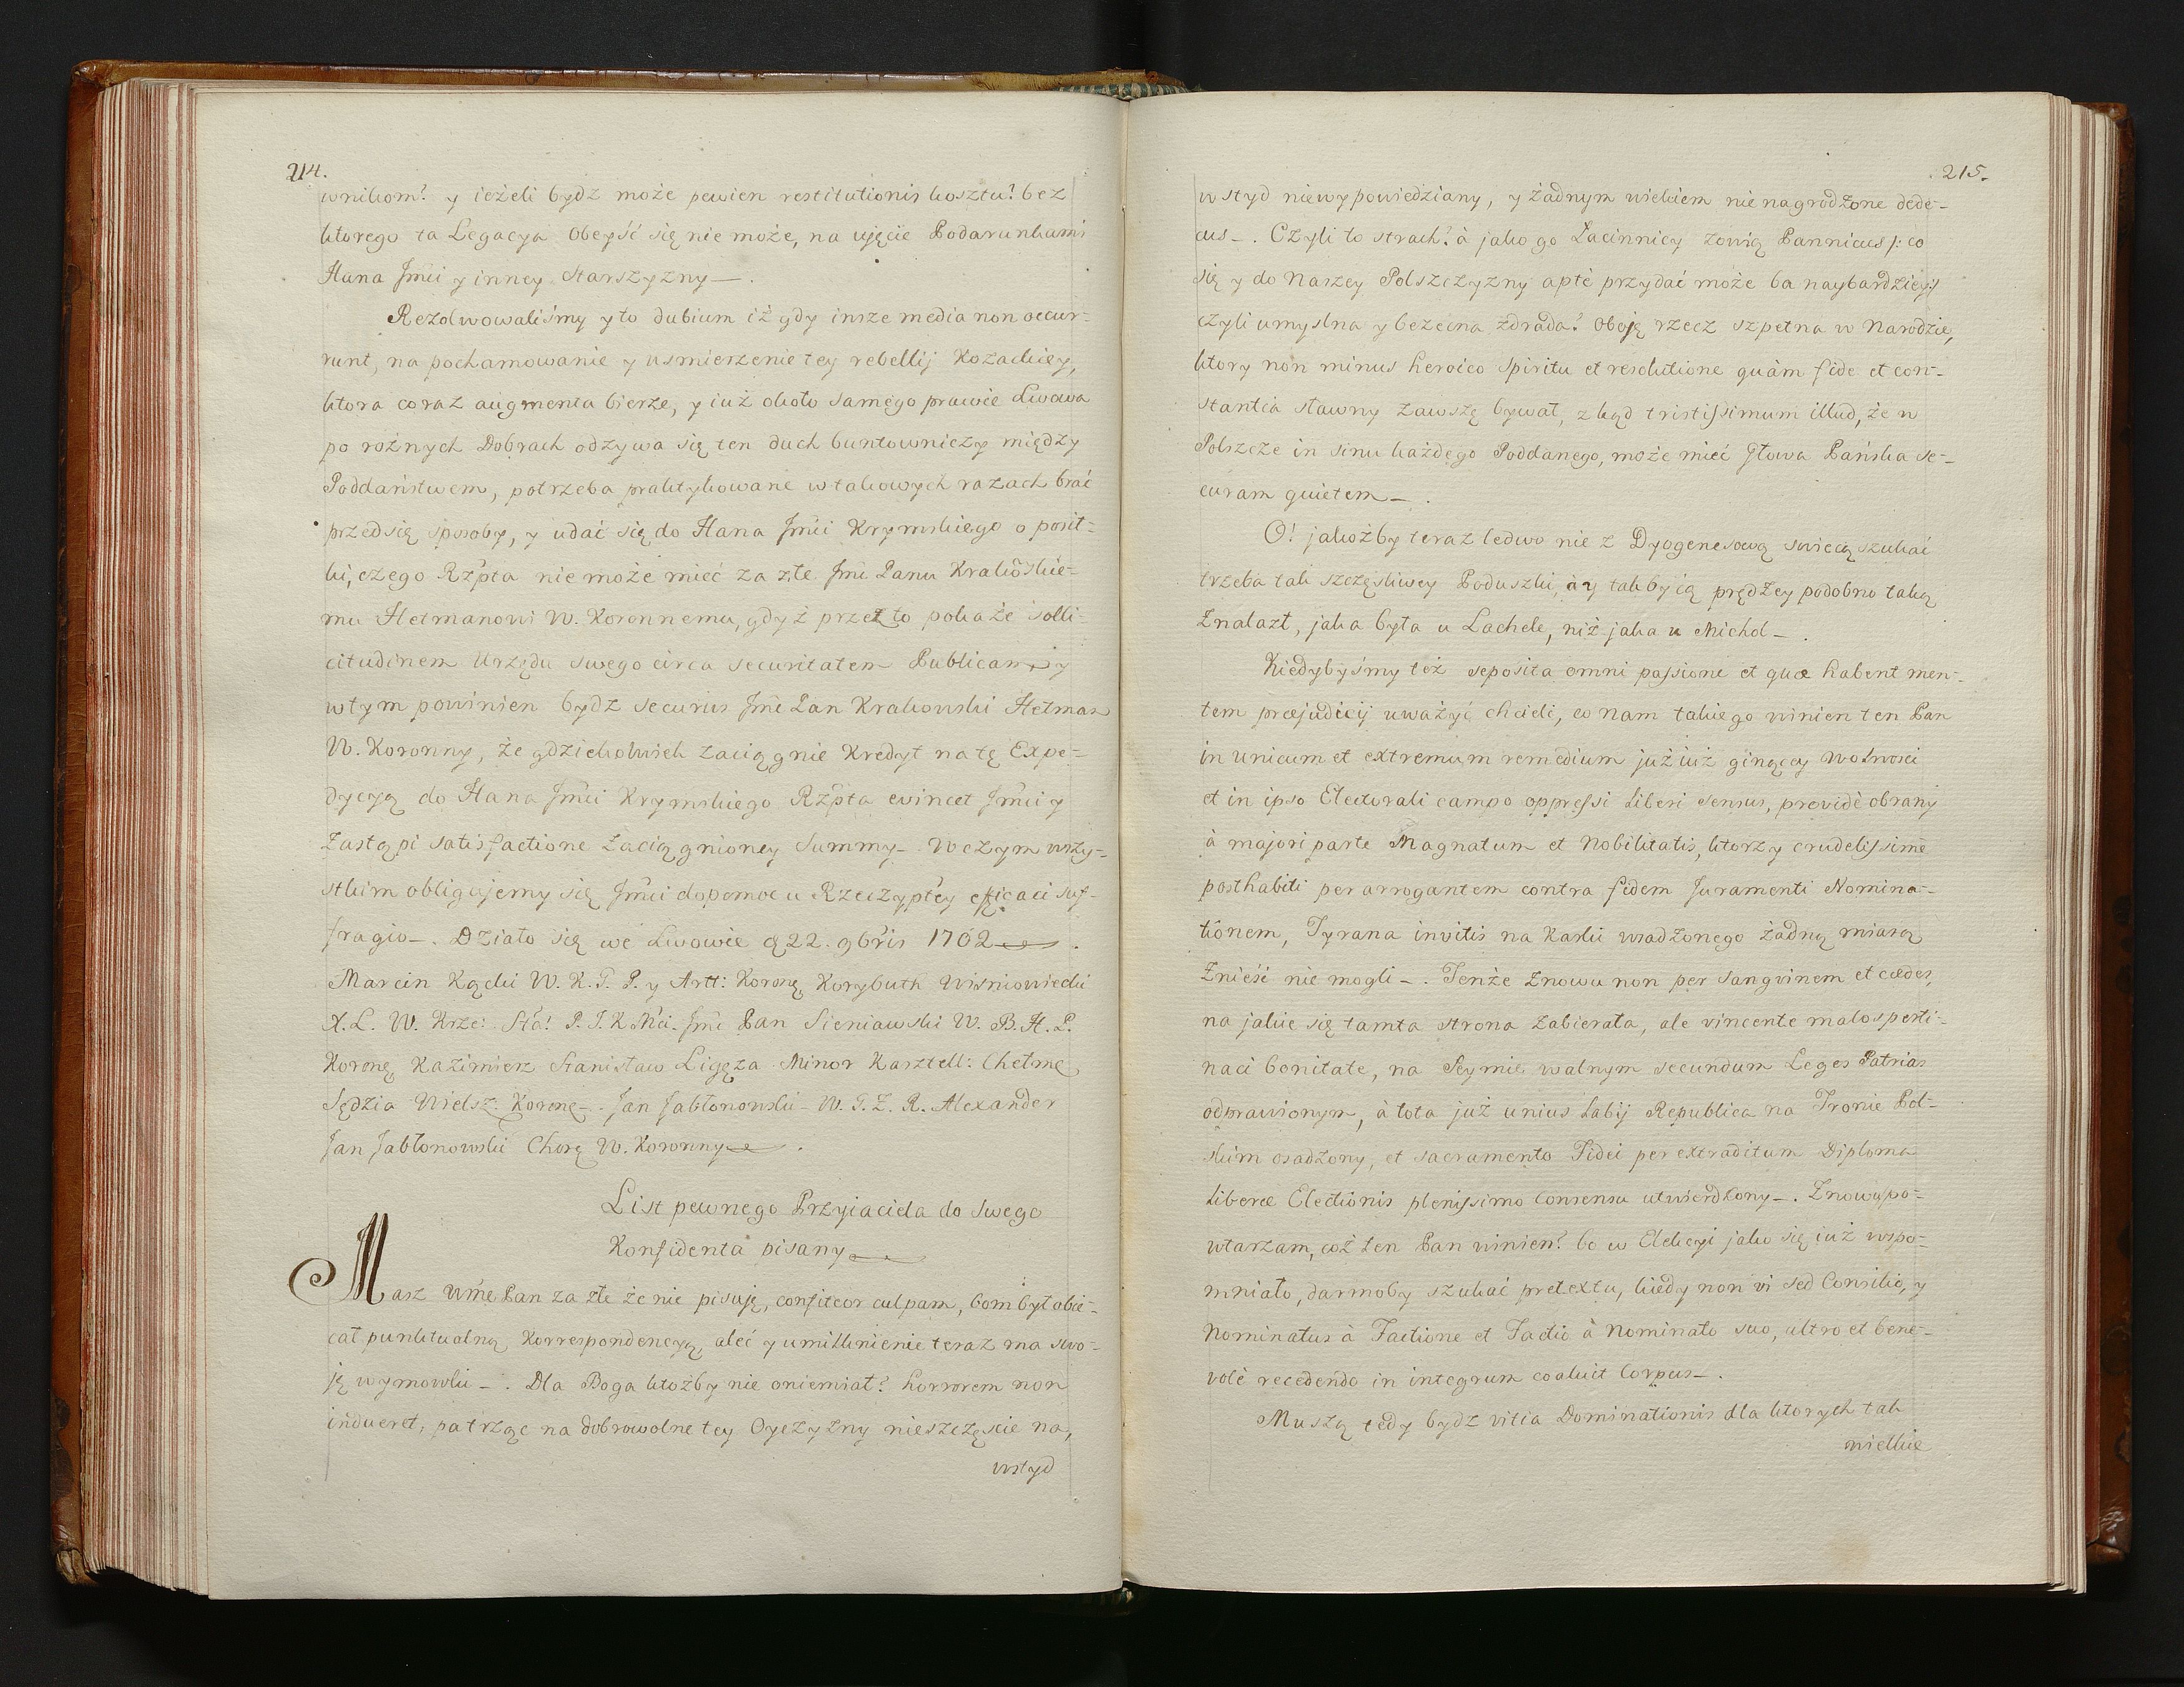 214.
wnikom? y ieżeli bydz może pewien restitutionis kosztu? bez
ktorego ta Legacya Obeyść się nie może, na ujęcie Podarunkami
Hana Jmci y inney Starszyzny —.
Rezolwowaliśmy y to dubium iż gdy insze media non occur-
runt, na pochamowanie y usmierzenie tey rebellij Kozackiey,
ktora coraz augmenta bierze, y iuż około samego prawie Lwowa
po rożnych Dobrach odzywa się ten duch buntowniczy między
Poddaństwem, potrzeba praktykowane w takowych razach brać
przed się sposoby, y udać się do Hana Jmci Krymskiego o posił-
ki, czego Rzpta nie może mieć za złe Jmć Panu Krakoskie-
mu Hetmanowi W. Koronnemu, gdyż przez to pokaże solli-
citudinem Urzędu swego circa securitatem Publicam, y
w tym powinien bydz securus Jmć Pan Krakowski Hetman
W. Koronny, że gdziekolwiek zaciągnie Kredyt na tę Expe-
dycyą do Hana Jmci Krymskiego Rzpta evincet Jmci y
zastąpi satisfactione zaciągnioney Summy —. W czym wszy-
stkim obligujemy się Jmci dopomoc u Rzeczyptey efficaci suf-
fragio —. Działo się we Lwowie d 22. 9bris 1702
Marcin Kącki W. K. G. P. y Artt: Koronę Korybuth Wisniowiecki
X. L. W. Krze: Sta! P. J. K Mci. Jmć Pan Sieniawski W. B. H. P.
Koronę Kazimierz Stanisław Ligęza Minor Kasztell: Chełmę
Sędzia Wielsz. Koronę —. Jan Jabłonowski W. G. Z. R. Alexander
Jan Jabłonowski Chorą W. Koronny.
List pewnego Przyiaciela do Swego
Konfidenta pisany
Masz Wme Pan za złe że nie pisuję, confiteor culpam, bom był obie-
cał punktualną Korrespondencyą, aleć y umilknienie teraz ma swo-
ję wymowki —. Dla Boga ktożby nie oniemiał? horrorem non
indueret, patrząc na dobrowolne tey Oyczyzny nieszczęście na,
wstyd
215.
wstyd niewypowiedziany, y żadnym wiekiem nie nagrodzone dede-
cus —. Czyli to strach? à jako go Łacinnicy zowią Pannicus /: co
się y do Naszey Polszczyzny aptè przydać może ba naybardziey:/
czyli umyslna y bezecna zdrada? Oboję rzecz szpetna w Narodzie,
ktory non minus heroico Spiritu et resolutione quàm fide et con-
stantia sławny zawszę bywał, zkąd tristissimum illud, że w
Polszcze in sinu każdego Poddanego, może mieć głowa Pańska se-
curam quietem —.
O! jakożby teraz ledwo nie z Dyogenesową swiecą szukać
trzeba tak szczęsliwey Poduszki, ày takby ią prędzey podobno taką
Znalazł, jaka była u Lachele, niż jaka u Michol —.
Kiedybyśmy też seposita omni passione et quæ habent men-
tem præjudicij uważyć chcieli, co nam takiego winien ten Pan
in unicum et extremum remedium już iuż ginącey Wolnosci
et in ipso Electorali campo oppressi liberi sensus, providè obrany
à majori parte Magnatum et Nobilitatis, ktorzy crudelissimè
posthabiti per arrogantem contra fidem Juramenti Nomina-
tionem, Tyrana invitis na Karki wsadzonego żadną miarą
Znieść nie mogli —. Tenże znowu non per sangvinem et cædes,
na jakie się tamta strona zabierała, ale vincente malos perti-
naci bonitate, na Seymie walnym secundum Leges Patrias
odprawionym, à tota już unius Labij Republica na Tronie Pol-
skim osadzony, et sacramento Fidei per extraditum Diploma
liberæ Electionis plenissimo Consensu utwierdzony —. Znowu po-
wtarzam, coż ten Pan winien? bo w Elekcyi jako się iuż wspo-
mniało, darmoby szukać pretextu, kiedy non vi sed Consilio, y
Nominatus à Factione et Factio à Nominato suo, ultro et bene-
volè recedendo in integrum coaluit Corpus —.
Muszą tedy bydz vitia Dominationis dla ktorych tak
wielkie